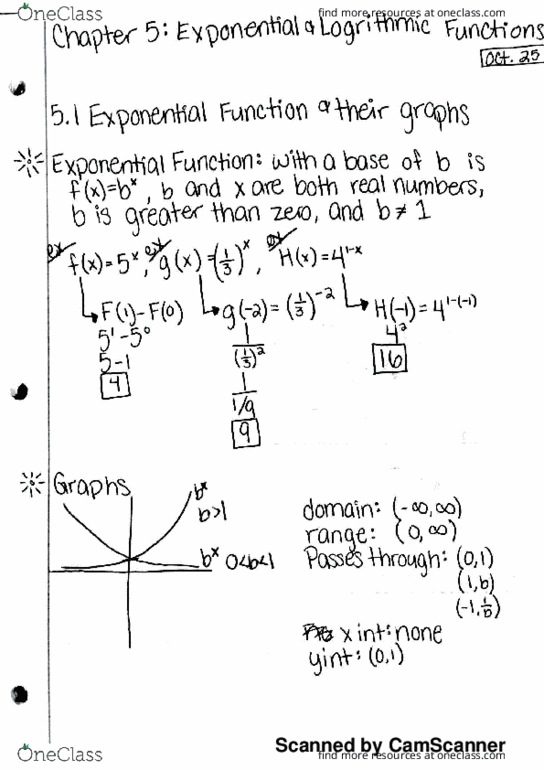 OneClass
find more resources at oneclass.com
Chapter 5: Exponential & Logrithmic Functions
Oct. 25
5.1 Exponential Function & their graphs
Exponential Function: with a base of b is
f(x)=bˣ, b and x are both real numbers,
b is greater than zero, and b≠1
ex f(x)=5ˣ, ex g(x)=(1/3)ˣ, ex H(x)=4¹⁻ˣ
F(1)-F(0)
5¹-5⁰
5-1
4
g(-2)=(1/3)⁻²
1
(1/3)²
1
1/9
9
H(-1)=4¹⁻⁽⁻¹⁾
4²
16
Graphs
bˣ
b>1
bˣ 0<b<1
domain: (-∞,∞)
range: (0,∞)
Passes through: (0,1)
(1,b)
(-1,1/b)
x int: none
yint: (0,1)
Scanned by CamScanner
OneClass
find more resources at oneclass.com